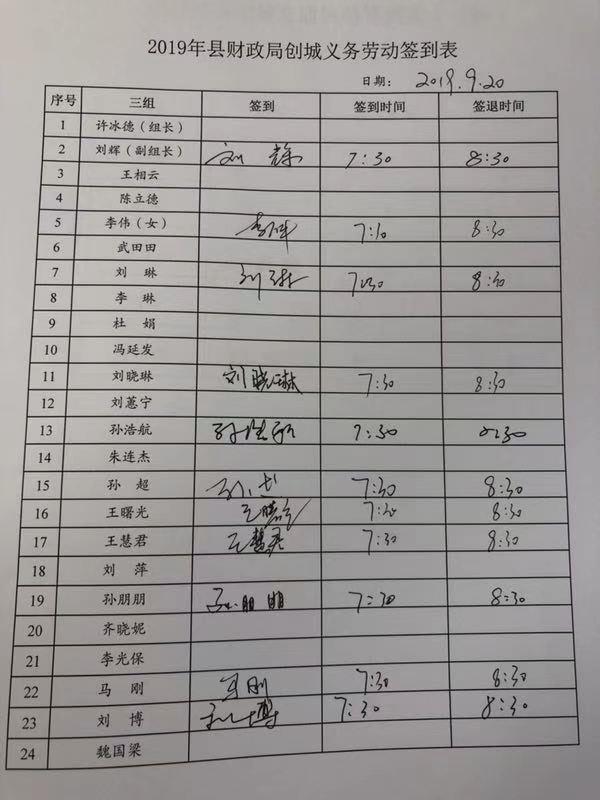 2019年县财政局创城义务劳动签到表
日期： 2019.9.20
序号 三组 签到 签到时间 签退时间
1 许冰德（组长）
2 刘辉（副组长） 刘辉 7:30 8:30
3 王相云
4 陈立德
5 李伟（女） 李伟 7:10 8:30
6 武田田
7 刘 琳 刘琳 7:30 8:30
8 李 琳
9 杜 娟
10 冯延发
11 刘晓琳 刘晓琳 7:30 8:30
12 刘蕙宁
13 孙浩航 孙浩航 7:30 8:30
14 朱连杰
15 孙 超 孙超 7:30 8:30
16 王曙光 7:30 8:30
17 王慧君 王慧君 7:30 8:30
18 刘 萍
19 孙朋朋 孙朋朋 7:30 8:30
20 齐晓妮
21 李光保
22 马 刚 马刚 7:30 8:30
23 刘 博 刘博 7:30 8:30
24 魏国梁